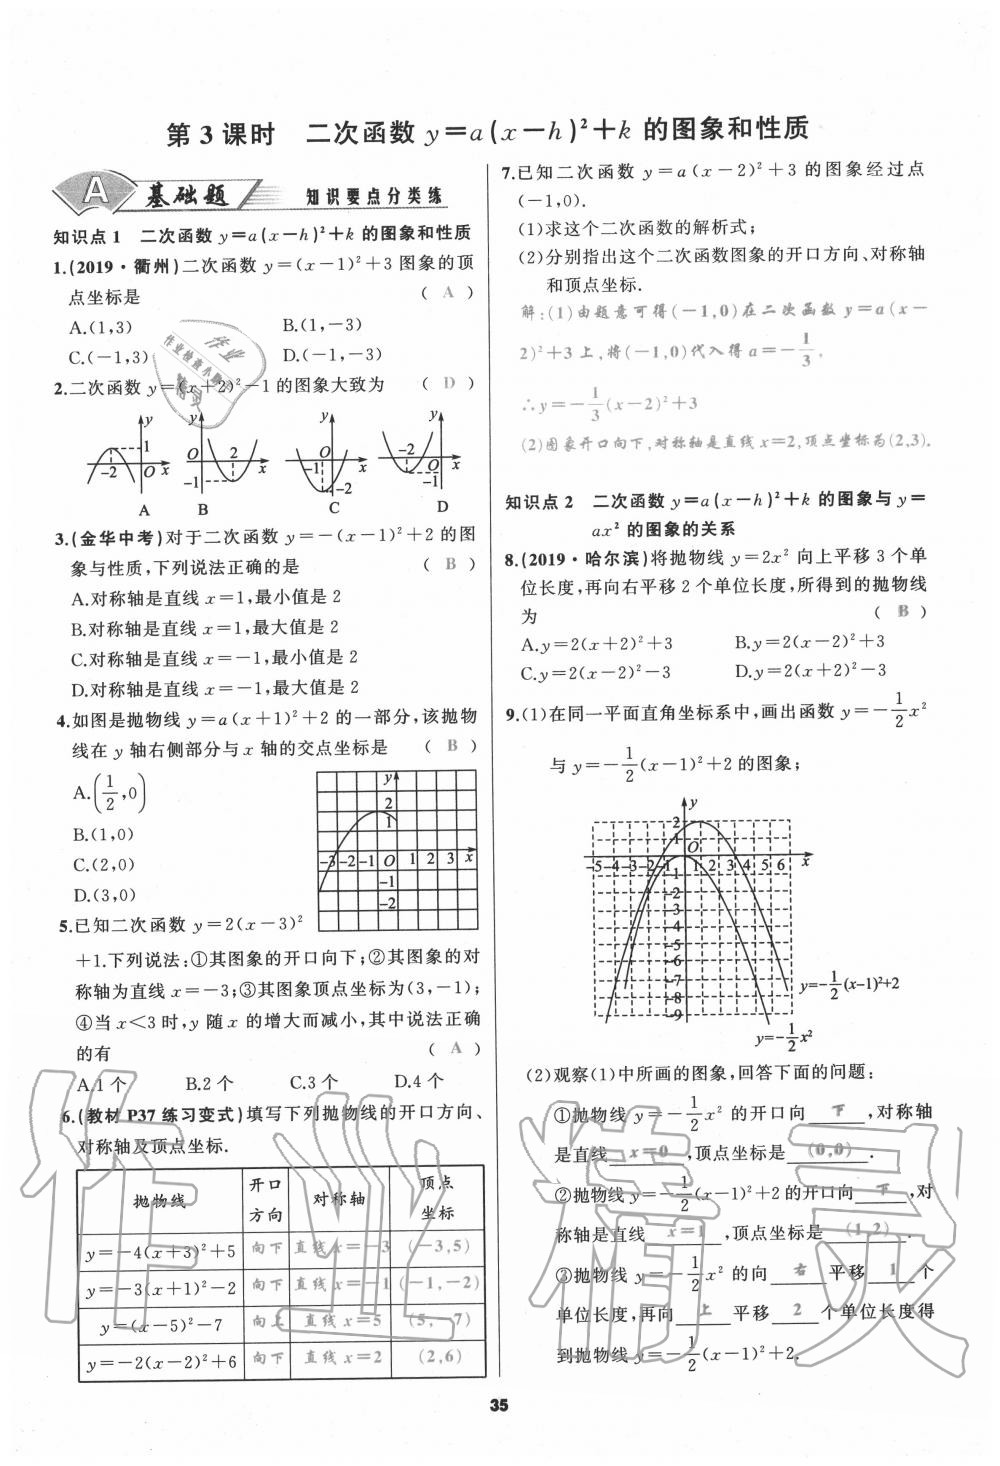 第3课时　二次函数 y=a(x-h)²+k 的图象和性质
A 基础题　知识要点分类练
知识点1　二次函数 y=a(x-h)²+k 的图象和性质
1.(2019·衢州)二次函数 y=(x-1)²+3 图象的顶
点坐标是 ( A )
A.(1,3)　B.(1,-3)
C.(-1,3)　D.(-1,-3)
2.二次函数 y=(x+2)²-1 的图象大致为 ( D )
y 1 -2 O x　y O 2 x -1　y O x -1 -2　y -2 O x -1
A　B　C　D
3.(金华中考)对于二次函数 y=-(x-1)²+2 的图
象与性质,下列说法正确的是 ( B )
A.对称轴是直线 x=1,最小值是 2
B.对称轴是直线 x=1,最大值是 2
C.对称轴是直线 x=-1,最小值是 2
D.对称轴是直线 x=-1,最大值是 2
4.如图是抛物线 y=a(x+1)²+2 的一部分,该抛物
线在 y 轴右侧部分与 x 轴的交点坐标是 ( B )
A.(1/2,0)
B.(1,0)
C.(2,0)
D.(3,0)
y
2
1
-3 -2 -1 O 1 2 3 x
-1
-2
5.已知二次函数 y=2(x-3)²
+1.下列说法:①其图象的开口向下;②其图象的对
称轴为直线 x=-3;③其图象顶点坐标为(3,-1);
④当 x<3 时,y 随 x 的增大而减小,其中说法正确
的有 ( A )
A.1 个　B.2 个　C.3 个　D.4 个
6.(教材 P37 练习变式)填写下列抛物线的开口方向、
对称轴及顶点坐标.
抛物线　开口方向　对称轴　顶点坐标
y=-4(x+3)²+5　向下　直线 x=-3　(-3,5)
y=-3(x+1)²-2　向下　直线 x=-1　(-1,-2)
y=(x-5)²-7　向上　直线 x=5　(5,-7)
y=-2(x-2)²+6　向下　直线 x=2　(2,6)
7.已知二次函数 y=a(x-2)²+3 的图象经过点
(-1,0).
(1)求这个二次函数的解析式;
(2)分别指出这个二次函数图象的开口方向、对称轴
和顶点坐标.
解:(1)由题意可得(-1,0)在二次函数 y=a(x-
2)²+3 上,将(-1,0)代入得 a=-1/3,
∴y=-1/3(x-2)²+3
(2)图象开口向下,对称轴是直线 x=2,顶点坐标为(2,3).
知识点2　二次函数 y=a(x-h)²+k 的图象与 y=
ax² 的图象的关系
8.(2019·哈尔滨)将抛物线 y=2x² 向上平移 3 个单
位长度,再向右平移 2 个单位长度,所得到的抛物线
为 ( B )
A.y=2(x+2)²+3　B.y=2(x-2)²+3
C.y=2(x-2)²-3　D.y=2(x+2)²-3
9.(1)在同一平面直角坐标系中,画出函数 y=-1/2x²
与 y=-1/2(x-1)²+2 的图象;
y
2
1
O
-5 -4 -3 -2 -1 1 2 3 4 5 6 x
-1
-2
-3
-4
-5
-6
-7
-8
-9
y=-1/2(x-1)²+2
y=-1/2x²
(2)观察(1)中所画的图象,回答下面的问题:
①抛物线 y=-1/2x² 的开口向 下 ,对称轴
是直线 x=0 ,顶点坐标是 (0,0) .
②抛物线 y=-1/2(x-1)²+2的开口向 下 ,对
称轴是直线 x=1 ,顶点坐标是 (1,2) .
③抛物线 y=-1/2x² 的向 右 平移 1 个
单位长度,再向 上 平移 2 个单位长度得
到抛物线 y=-1/2(x-1)²+2.
35
作业精灵
作业
作业检查小助手
精灵